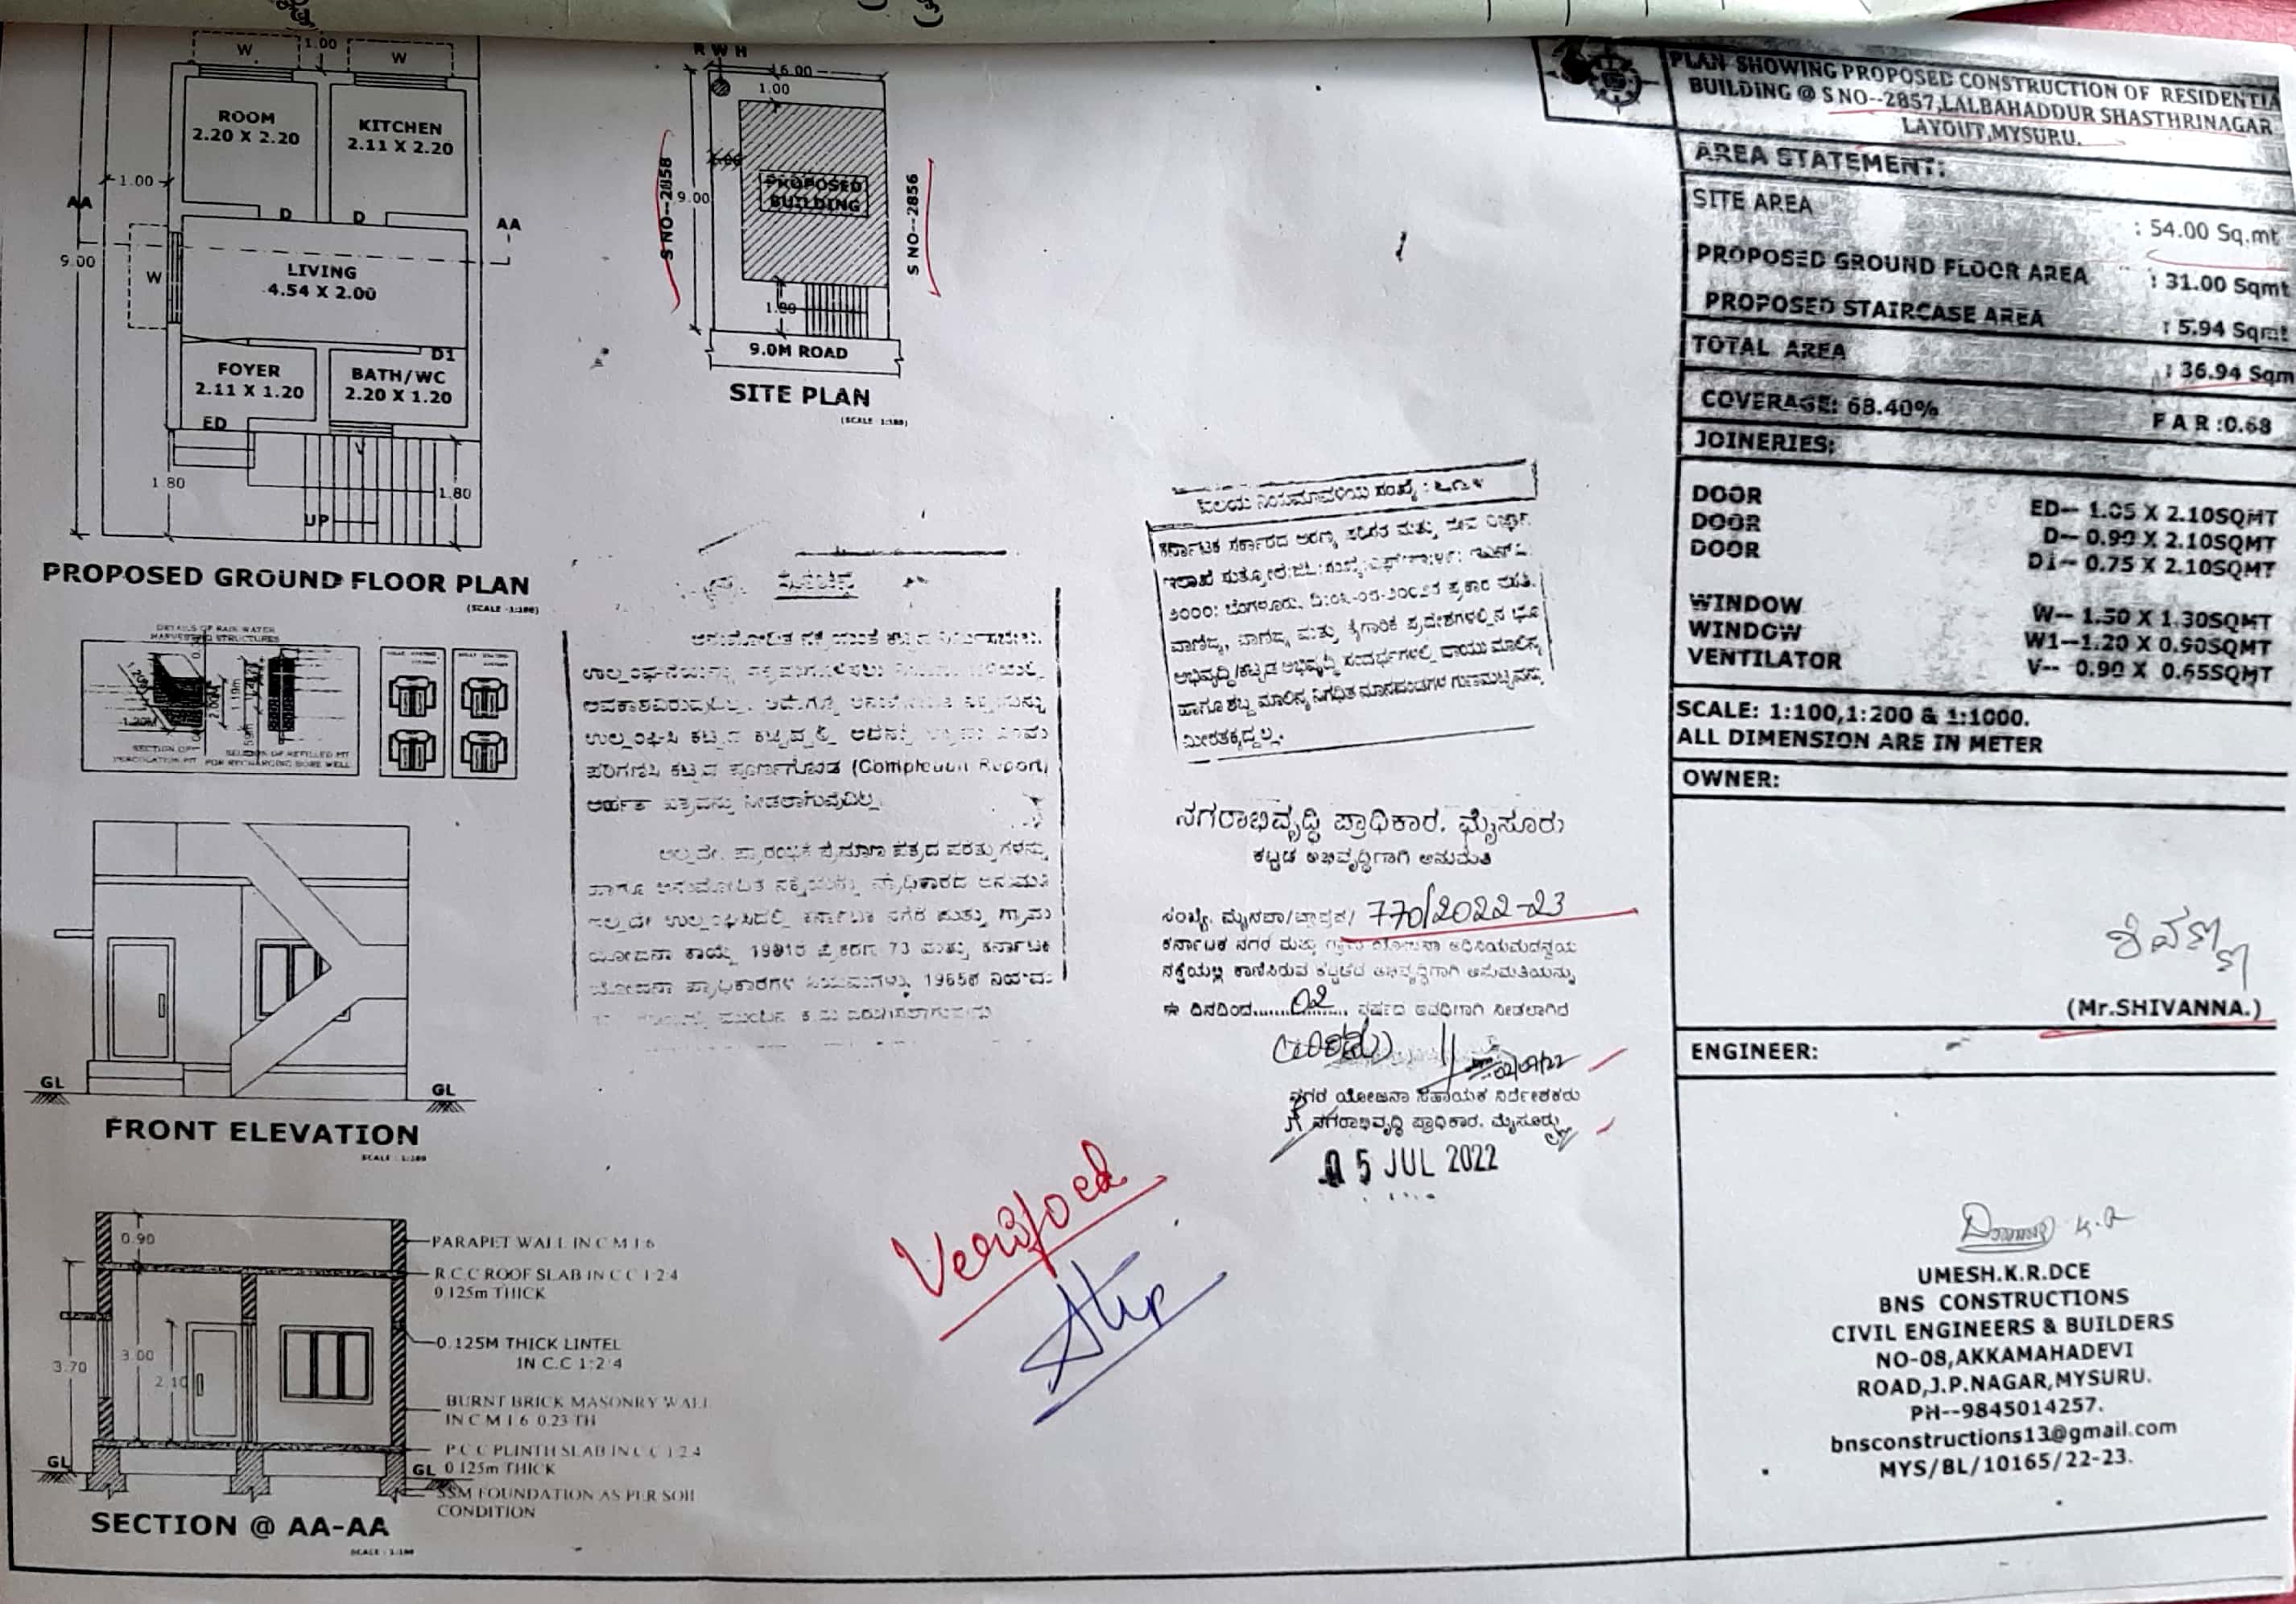 W
1.00
W
ROOM
2.20 X 2.20
KITCHEN
2.11 X 2.20
1.00
AA
D
D
AA
9.00
W
LIVING
4.54 X 2.00
D1
FOYER
2.11 X 1.20
BATH/WC
2.20 X 1.20
ED
V
1.80
1.80
UP
PROPOSED GROUND FLOOR PLAN
(SCALE -1:100)
DETAILS OF RAIN WATER
HARVESTING STRUCTURES
1.20M
2.00M
1.19m
SECTION OF
PERCOLATION PIT
SECTION OF REFILLED PIT
FOR RECHARGING BORE WELL
GL
GL
FRONT ELEVATION
SCALE : 1:100
0.90
3.70
3.00
2.10
PARAPET WALL IN C M 1 6
R.C.C ROOF SLAB IN C C 1:2:4
0.125m THICK
0.125M THICK LINTEL
IN C.C 1:2:4
BURNT BRICK MASONRY WALL
IN C M 1 6 0.23 TH
P.C.C PLINTH SLAB IN C C 1:2:4
0.125m THICK
GL
GL
SSM FOUNDATION AS PER SOIL
CONDITION
SECTION @ AA-AA
SCALE : 1:100
R W H
6.00
1.00
S NO--2858
9.00
1.00
PROPOSED
BUILDING
S NO--2856
1.80
9.0M ROAD
SITE PLAN
(SCALE 1:100)
ಸೂಚನೆ
ಅನುಮೋದಿತ ನಕ್ಷೆಯಂತೆ ಕಟ್ಟಡ
ಅವಕಾಶವಿರುವುದಿಲ್ಲ.
ಉಲ್ಲಂಘಿಸಿ ಕಟ್ಟಡ
ಪರಿಗಣಿಸಿ ಕಟ್ಟಡ (Completion Report)
ಅರ್ಹತಾ ಪತ್ರವನ್ನು ನೀಡಲಾಗುವುದಿಲ್ಲ.
ಅಲ್ಲದೇ, ಪ್ರಾರಂಭಿಕ ಪ್ರಮಾಣ ಪತ್ರದ ಷರತ್ತುಗಳನ್ನು
ಹಾಗೂ ಅನುಮೋದಿತ ನಕ್ಷೆಯನ್ನು ಪ್ರಾಧಿಕಾರದ ಅನುಮತಿ
ಇಲ್ಲದೇ ಉಲ್ಲಂಘಿಸಿದಲ್ಲಿ ಕರ್ನಾಟಕ ನಗರ ಮತ್ತು ಗ್ರಾಮ
ಯೋಜನಾ ಕಾಯ್ದೆ 73 ಮತ್ತು ಕರ್ನಾಟಕ
ಯೋಜನಾ ಪ್ರಾಧಿಕಾರಗಳ ನಿಯಮಗಳು, 1965ರ ನಿಯಮ
ವಲಯ ನಿಯಮಾವಳಿಯ ಸಂಖ್ಯೆ :
ಕರ್ನಾಟಕ ಸರ್ಕಾರದ ಅರಣ್ಯ ಪರಿಸರ ಮತ್ತು ಜೀವ
ಇಲಾಖೆ
೨೦೦೦: ಬೆಂಗಳೂರು, ಪ್ರಕಾರ ವಸತಿ,
ವಾಣಿಜ್ಯ, ಮತ್ತು ಕೈಗಾರಿಕ ಪ್ರದೇಶಗಳಲ್ಲಿನ ಭೂ
ಅಭಿವೃದ್ಧಿ/ಕಟ್ಟಡ ಅಭಿವೃದ್ಧಿ ಸಂದರ್ಭಗಳಲ್ಲಿ ವಾಯು ಮಾಲಿನ್ಯ
ಹಾಗೂ ಶಬ್ದ ಮಾಲಿನ್ಯ ನಿಗಧಿತ ಮಾನದಂಡಗಳ ಗುಣಮಟ್ಟವನ್ನು
ಮೀರತಕ್ಕದ್ದಲ್ಲ.
ನಗರಾಭಿವೃದ್ಧಿ ಪ್ರಾಧಿಕಾರ, ಮೈಸೂರು
ಕಟ್ಟಡ ಅಭಿವೃದ್ಧಿಗಾಗಿ ಅನುಮತಿ
ಸಂಖ್ಯೆ. 770/2022-23
ಕರ್ನಾಟಕ ನಗರ ಮತ್ತು ಗ್ರಾಮ ಯೋಜನಾ ಅಧಿನಿಯಮದನ್ವಯ
ನಕ್ಷೆಯಲ್ಲಿ ಕಾಣಿಸಿರುವ ಕಟ್ಟಡದ ಅಭಿವೃದ್ಧಿಗಾಗಿ ಅನುಮತಿಯನ್ನು
ಈ ದಿನದಿಂದ......02...... ವರ್ಷದ ಅವಧಿಗಾಗಿ ನೀಡಲಾಗಿದೆ
(ಎರಡು)
ನಗರ ಯೋಜನಾ ಸಹಾಯಕ ನಿರ್ದೇಶಕರು
ನಗರಾಭಿವೃದ್ಧಿ ಪ್ರಾಧಿಕಾರ, ಮೈಸೂರು
05 JUL 2022
Verified
PLAN SHOWING PROPOSED CONSTRUCTION OF RESIDENTIA
BUILDING @ S NO--2857,LALBAHADDUR SHASTHRINAGAR
LAYOUT,MYSURU.
AREA STATEMENT:
SITE AREA : 54.00 Sq.mt
PROPOSED GROUND FLOOR AREA : 31.00 Sqmt
PROPOSED STAIRCASE AREA : 5.94 Sqmt
TOTAL AREA : 36.94 Sqm
COVERAGE: 68.40% F A R :0.68
JOINERIES:
DOOR ED-- 1.05 X 2.10SQMT
DOOR D-- 0.90 X 2.10SQMT
DOOR D1-- 0.75 X 2.10SQMT
WINDOW W-- 1.50 X 1.30SQMT
WINDOW W1--1.20 X 0.90SQMT
VENTILATOR V-- 0.90 X 0.65SQMT
SCALE: 1:100,1:200 & 1:1000.
ALL DIMENSION ARE IN METER
OWNER:
ಶಿವಣ್ಣ
(Mr.SHIVANNA.)
ENGINEER:
UMESH.K.R.DCE
BNS CONSTRUCTIONS
CIVIL ENGINEERS & BUILDERS
NO-08,AKKAMAHADEVI
ROAD,J.P.NAGAR,MYSURU.
PH--9845014257.
bnsconstructions13@gmail.com
MYS/BL/10165/22-23.